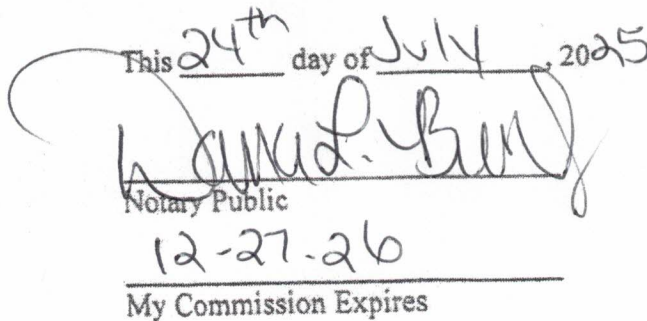 This 24th day of July, 2025
L.
Notary Public
12-27-26
My Commission Expires